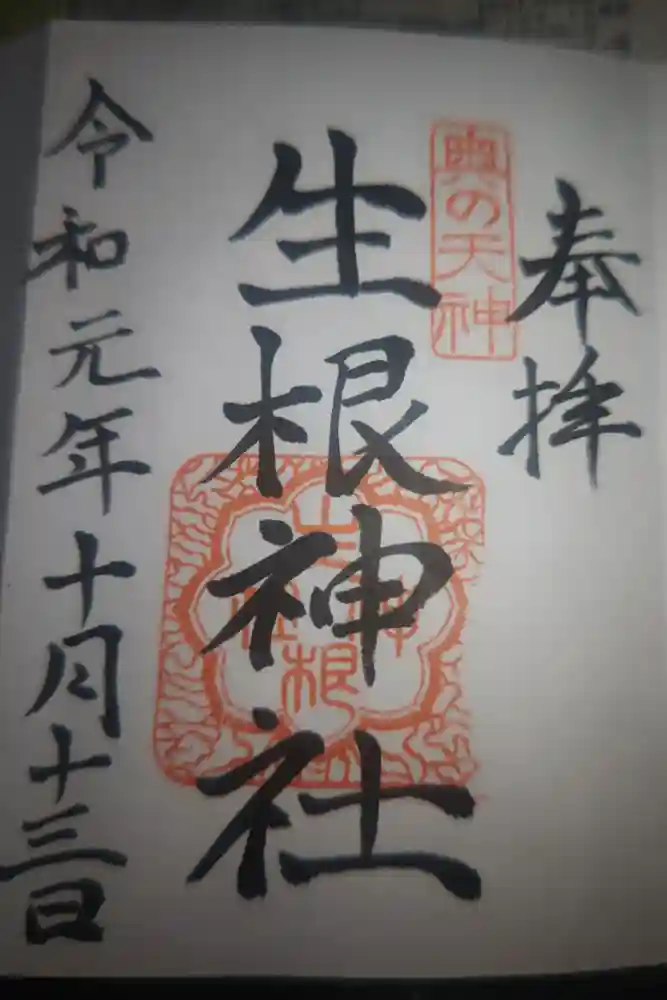 奉拝
奥の天神
生根神社
令和元年十月十三日